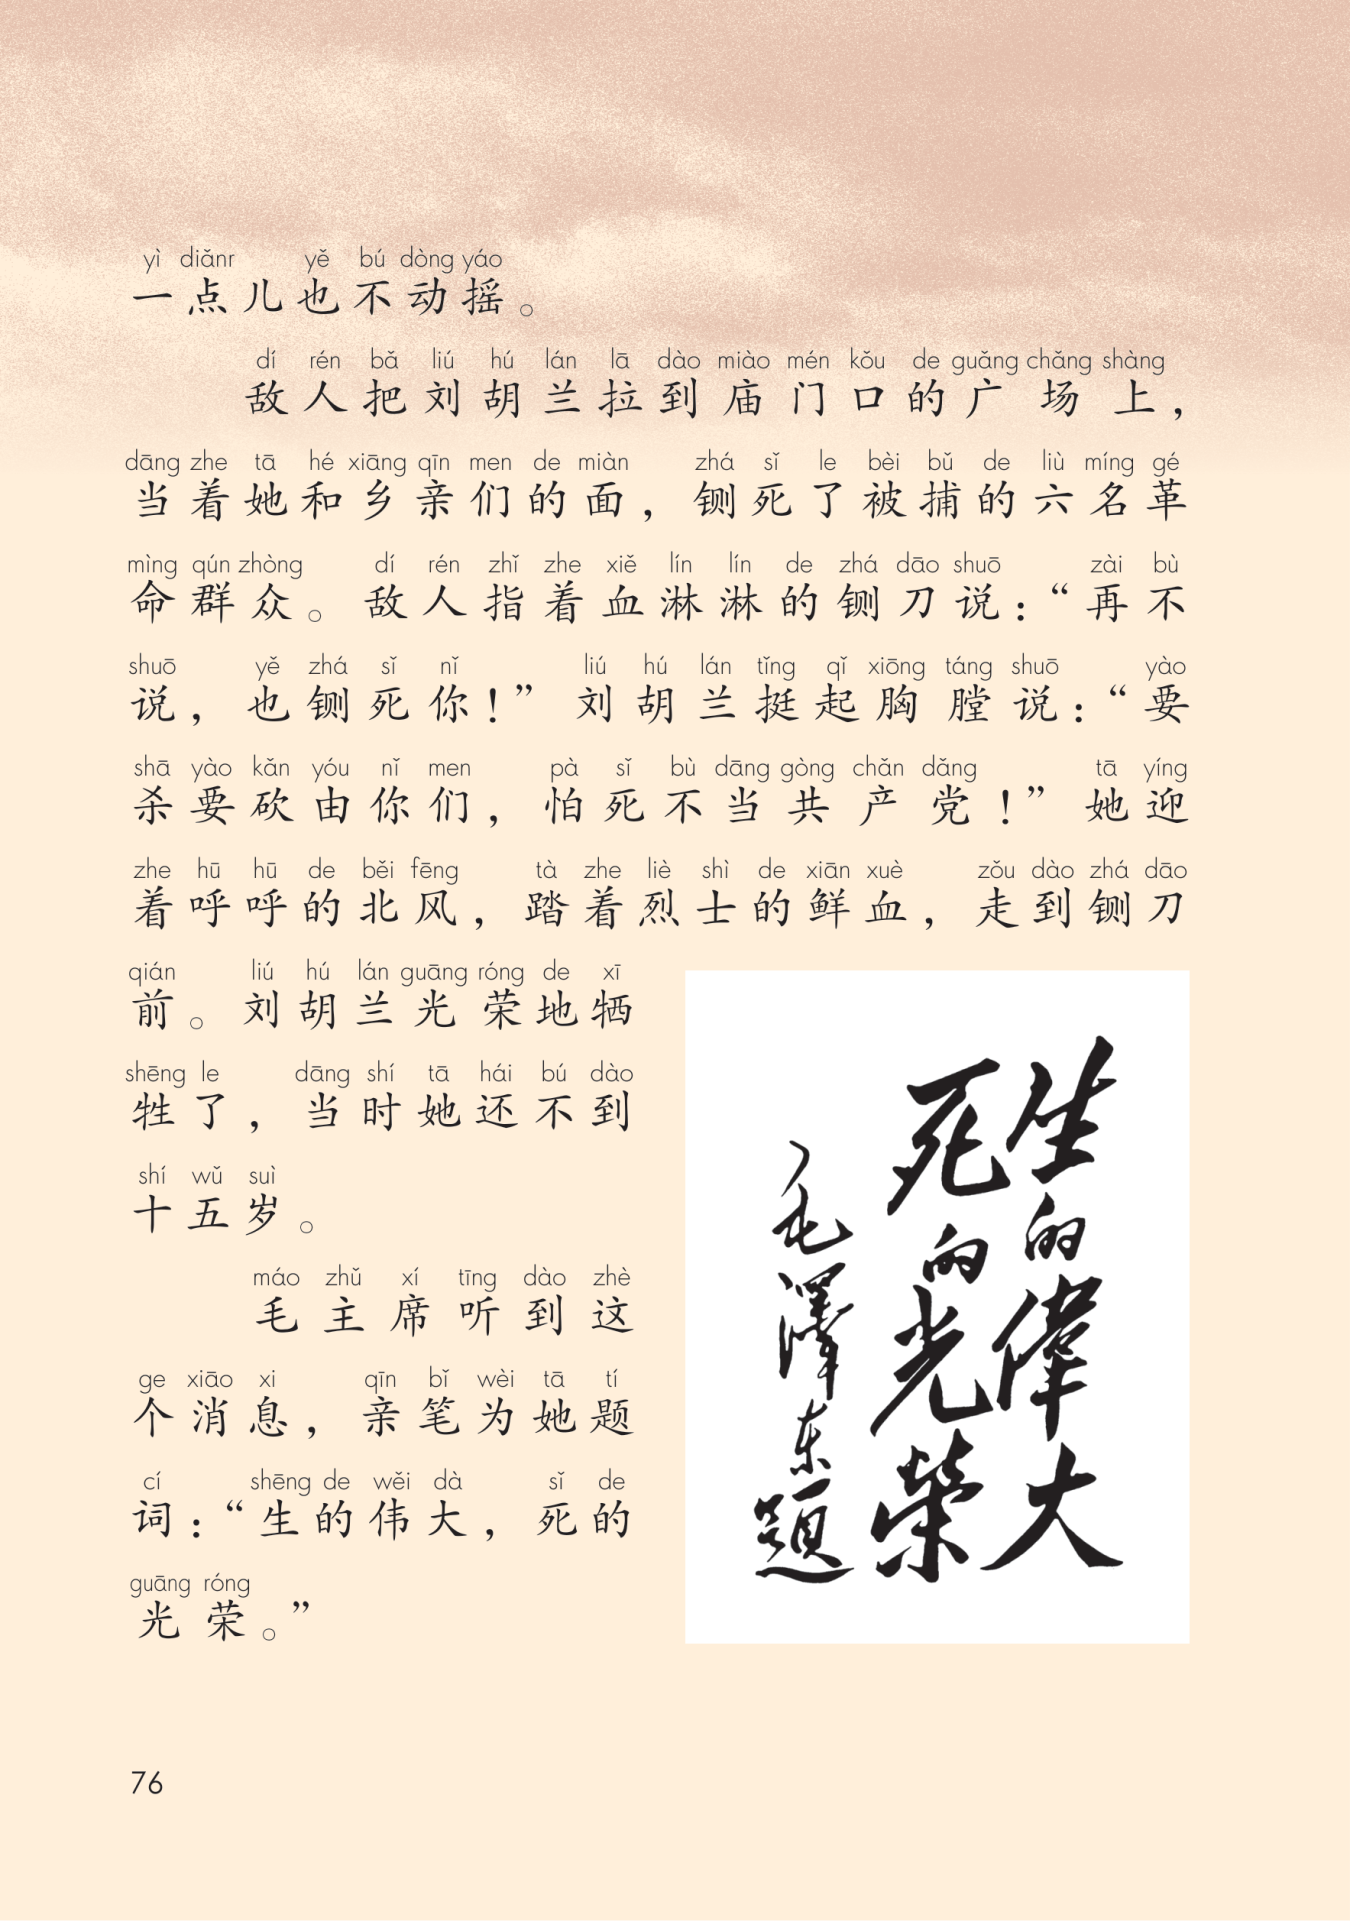 yì diǎnr yě bú dòng yáo
一点儿也不动摇。
dí rén bǎ liú hú lán lā dào miào mén kǒu de guǎng chǎng shàng
敌人把刘胡兰拉到庙门口的广场上，
dāng zhe tā hé xiāng qīn men de miàn zhá sǐ le bèi bǔ de liù míng gé
当着她和乡亲们的面，铡死了被捕的六名革
mìng qún zhòng dí rén zhǐ zhe xiě lín lín de zhá dāo shuō zài bù
命群众。敌人指着血淋淋的铡刀说：“再不
shuō yě zhá sǐ nǐ liú hú lán tǐng qǐ xiōng táng shuō yào
说，也铡死你！”刘胡兰挺起胸膛说：“要
shā yào kǎn yóu nǐ men pà sǐ bù dāng gòng chǎn dǎng tā yíng
杀要砍由你们，怕死不当共产党！”她迎
zhe hū hū de běi fēng tà zhe liè shì de xiān xuè zǒu dào zhá dāo
着呼呼的北风，踏着烈士的鲜血，走到铡刀
qián liú hú lán guāng róng de xī
前。刘胡兰光荣地牺
shēng le dāng shí tā hái bú dào
牲了，当时她还不到
shí wǔ suì
十五岁。
máo zhǔ xí tīng dào zhè
毛主席听到这
ge xiāo xi qīn bǐ wèi tā tí
个消息，亲笔为她题
cí shēng de wěi dà sǐ de
词：“生的伟大，死的
guāng róng
光荣。”
生的偉大
死的光榮
毛澤东題
76